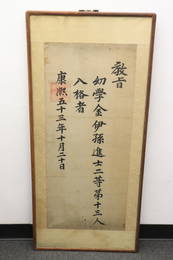 教旨
幼學金伊孫進士二等第十三人
入格者
康熙五十三年十月二十日